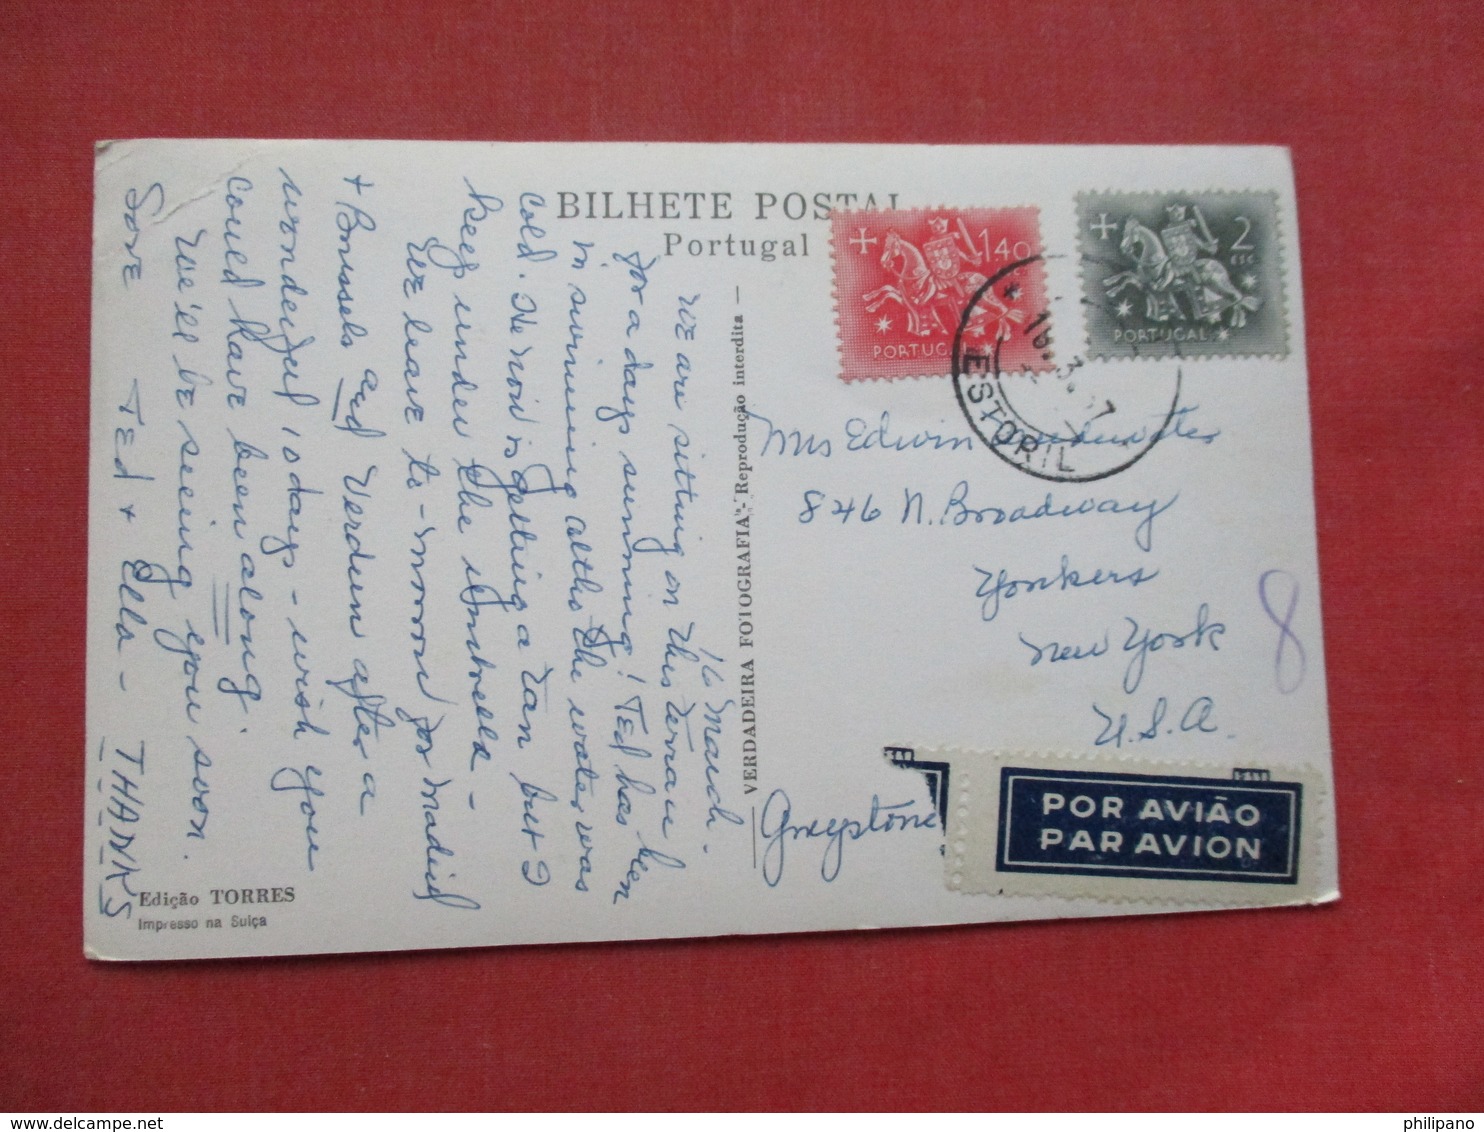 BILHETE POSTAL
Portugal
16 March -
We are sitting on this terrace
for a days sunning! Ted has been
in swimming altho the water was
cold. He now is getting a tan but I
keep under the umbrella -
We leave to-morrow for Madrid
+ Brussels and Verdun after a
wonderful 10 days - wish you
could have been along.
We'll be seeing you soon.
Love Ted + Ella - THANKS
Edição TORRES
Impresso na Suiça
VERDADEIRA FOTOGRAFIA - Reprodução interdita -
1$40
PORTUGAL
2
ESC
PORTUGAL
* 16. 3. 57
ESTORIL
Mrs Edwin
826 N. Broadway
Yonkers
New York
U.S.A.
Greystone
8
POR AVIÃO
PAR AVION
philipano